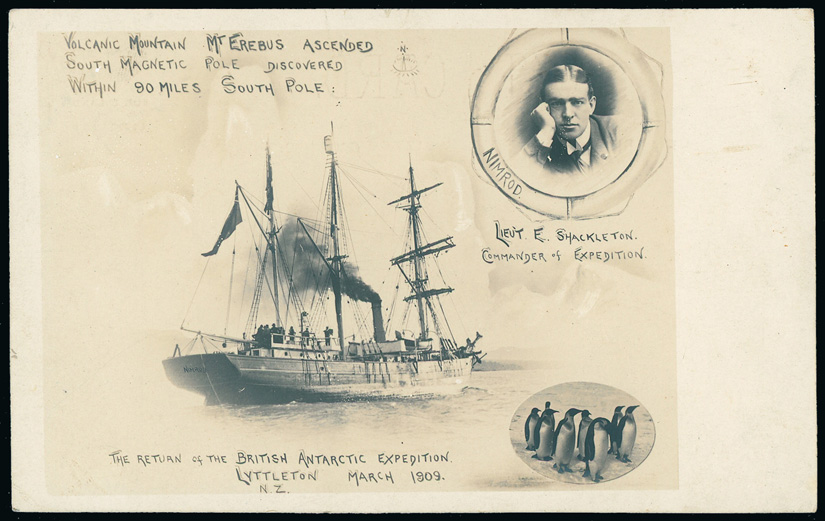 VOLCANIC MOUNTAIN MT EREBUS ASCENDED
SOUTH MAGNETIC POLE DISCOVERED
WITHIN 90 MILES SOUTH POLE:
N
NIMROD.
LIEUT. E. SHACKLETON.
COMMANDER of EXPEDITION.
NIMROD
THE RETURN OF THE BRITISH ANTARCTIC EXPEDITION.
LYTTLETON MARCH 1909.
N.Z.